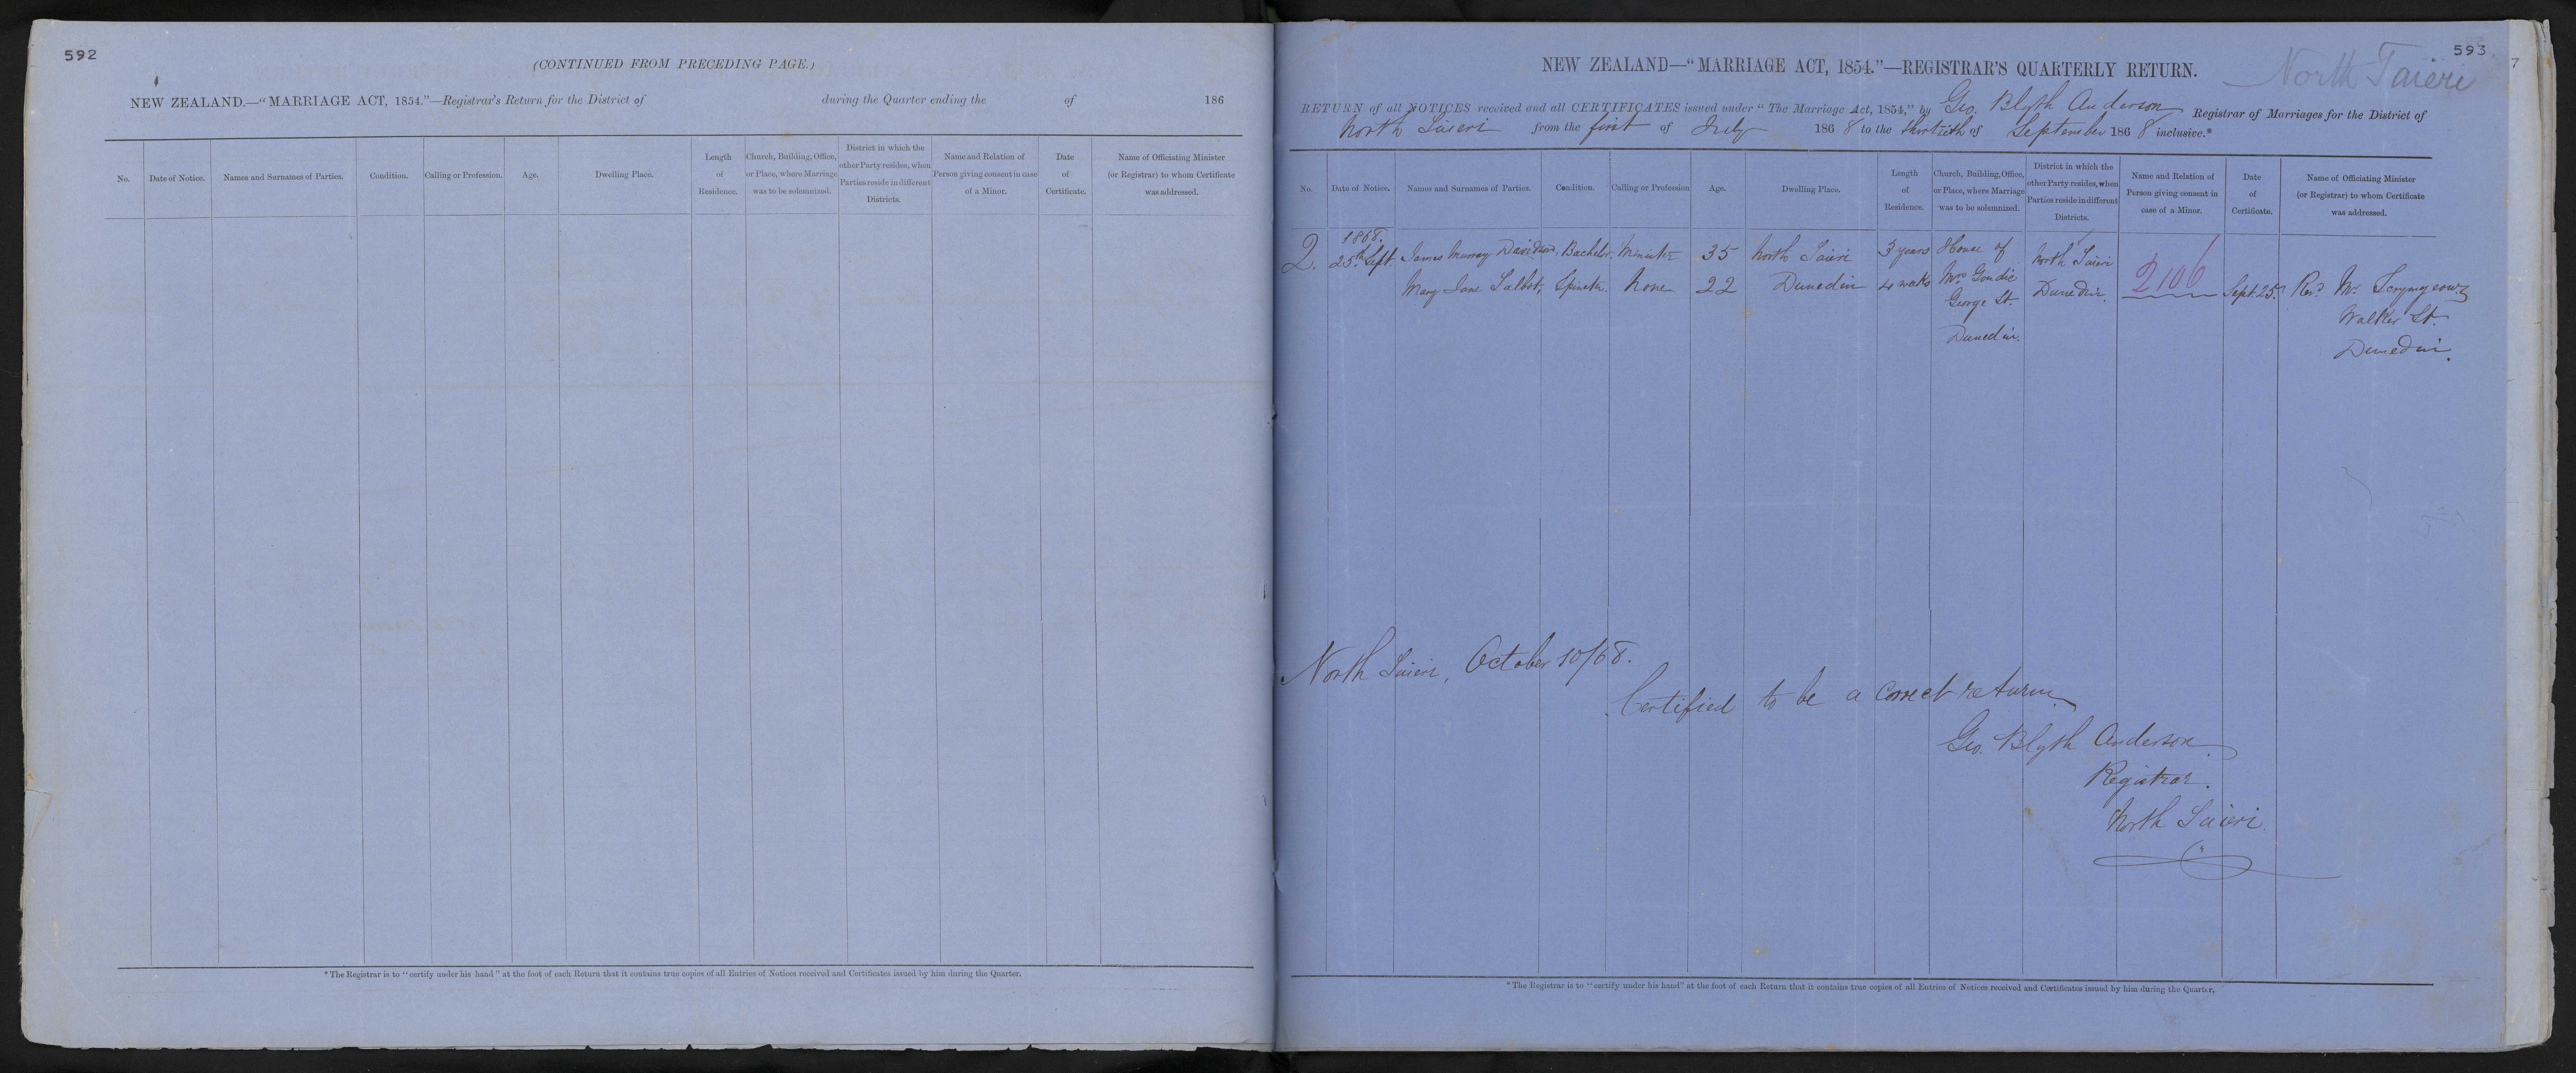 592
(CONTINUED FROM PRECEDING PAGE.)
NEW ZEALAND.—"MARRIAGE ACT, 1854."—Registrar's Return for the District of during the Quarter ending the of 186
No. Date of Notice. Names and Surnames of Parties. Condition. Calling or Profession. Age. Dwelling Place. Length of Residence. Church, Building, Office, or Place, where Marriage was to be solemnized. District in which the other Party resides, when Parties reside in different Districts. Name and Relation of Person giving consent in case of a Minor. Date of Certificate. Name of Officiating Minister (or Registrar) to whom Certificate was addressed.
*The Registrar is to "certify under his hand" at the foot of each Return that it contains true copies of all Entries of Notices received and Certificates issued by him during the Quarter.
593
7
North Taieri
NEW ZEALAND—"MARRIAGE ACT, 1854."—REGISTRAR'S QUARTERLY RETURN.
RETURN of all NOTICES received and all CERTIFICATES issued under "The Marriage Act, 1854," by Geo. Blyth Anderson Registrar of Marriages for the District of
North Taieri from the first of July 1868 to the thirtieth of September 1868 inclusive.*
No. Date of Notice. Names and Surnames of Parties. Condition. Calling or Profession Age. Dwelling Place. Length of Residence. Church, Building, Office, or Place, where Marriage was to be solemnized. District in which the other Party resides, when Parties reside in different Districts. Name and Relation of Person giving consent in case of a Minor. Date of Certificate. Name of Officiating Minister (or Registrar) to whom Certificate was addressed.
1868.
2. 25th Sept James Murray Davidson, Bachelor. Minister 35 North Taieri 3 years House of North Taieri
Mary Jane Talbot, Spinster. None 22 Dunedin 4 weeks Mrs Goudie Dunedin. 2106 Sept. 25. Revd Mr. Scrymgeour
George St. Walker St.
Dunedin. Dunedin.
North Taieri, October 10/68.
Certified to be a correct return.
Geo. Blyth Anderson
Registrar.
North Taieri.
*The Registrar is to "certify under his hand" at the foot of each Return that it contains true copies of all Entries of Notices received and Certificates issued by him during the Quarter.